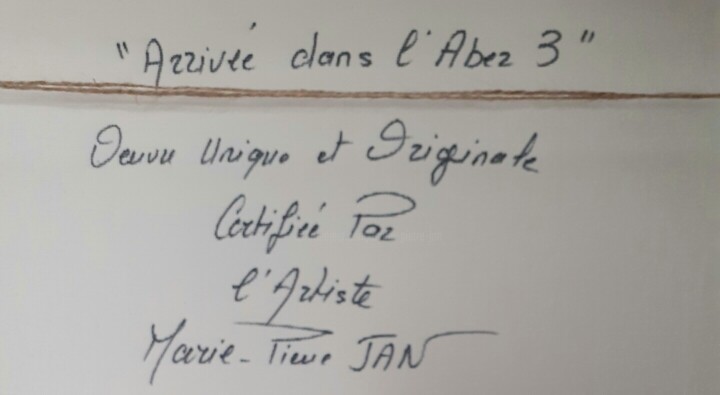 "Arrivée dans l'Aber 3"
Oeuvre Unique et Originale
Certifiée Par
l'Artiste
Marie-Pierre JAN